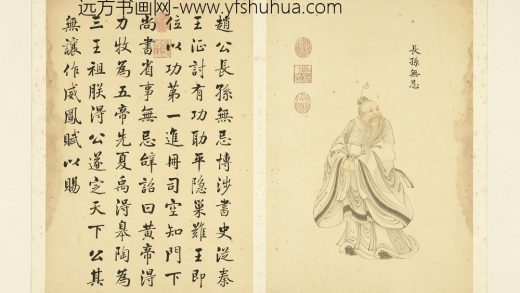 远方书画网-www.yfshuhua.com
長孫無忌
趙公長孫無忌博涉書史從秦
王征討有功助平隐巢難王即
位以功第一進冊司空知門下
尚書省事無忌辭詔曰黃帝得
力牧為五帝先夏禹得皋陶為
三王祖朕得公遂定天下公其
無讓作威鳳賦以賜